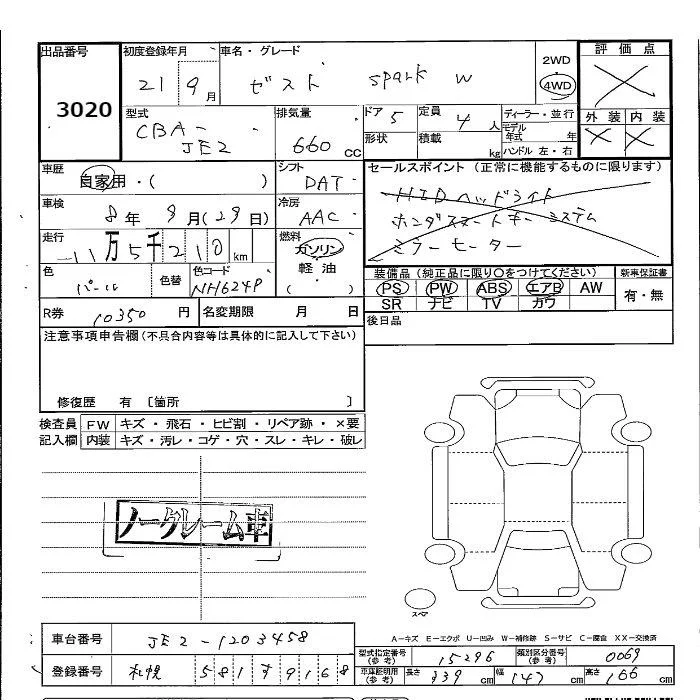 出品番号
3020
初度登録年月
21 9月
車名・グレード
ゼスト spark W
2WD
4WD
評価点
型式
CBA-
JE2
排気量
660 cc
ドア 5
形状
定員 4 人
積載 kg
ディーラー・並行
モデル年式 年
ハンドル 左・右
外装 内装
車歴
自家用・( )
シフト
DAT
セールスポイント(正常に機能するものに限ります)
HIDヘッドライト
ホンダスマートキーシステム
ミラーヒーター
車検
8年9月(29日)
冷房
AAC
走行
11万5千210km
燃料
ガソリン
軽油
( )
色
パール
色替
色コード
NH624P
装備品(純正品に限り○をつけてください)
PS PW ABS エアB AW
SR ナビ TV カワ
新車保証書
有・無
R券 10350 円
名変期限 月 日
後日品
注意事項申告欄(不具合内容等は具体的に記入して下さい)
修復歴 有 〔箇所 〕
検査員記入欄
FW キズ・飛石・ヒビ割・リペア跡・×要
内装 キズ・汚レ・コゲ・穴・スレ・キレ・破レ
ノークレーム車
スペア
A-キズ E-エクボ U-凹み W-補修跡 S-サビ C-腐食 XX-交換済
車台番号 JE2-1203458
登録番号 札幌 581 す 9168
型式指定番号(参考) 15296
類別区分番号(参考) 0069
車庫証明用(参考) 長さ 339 cm 幅 147 cm 高さ 166 cm